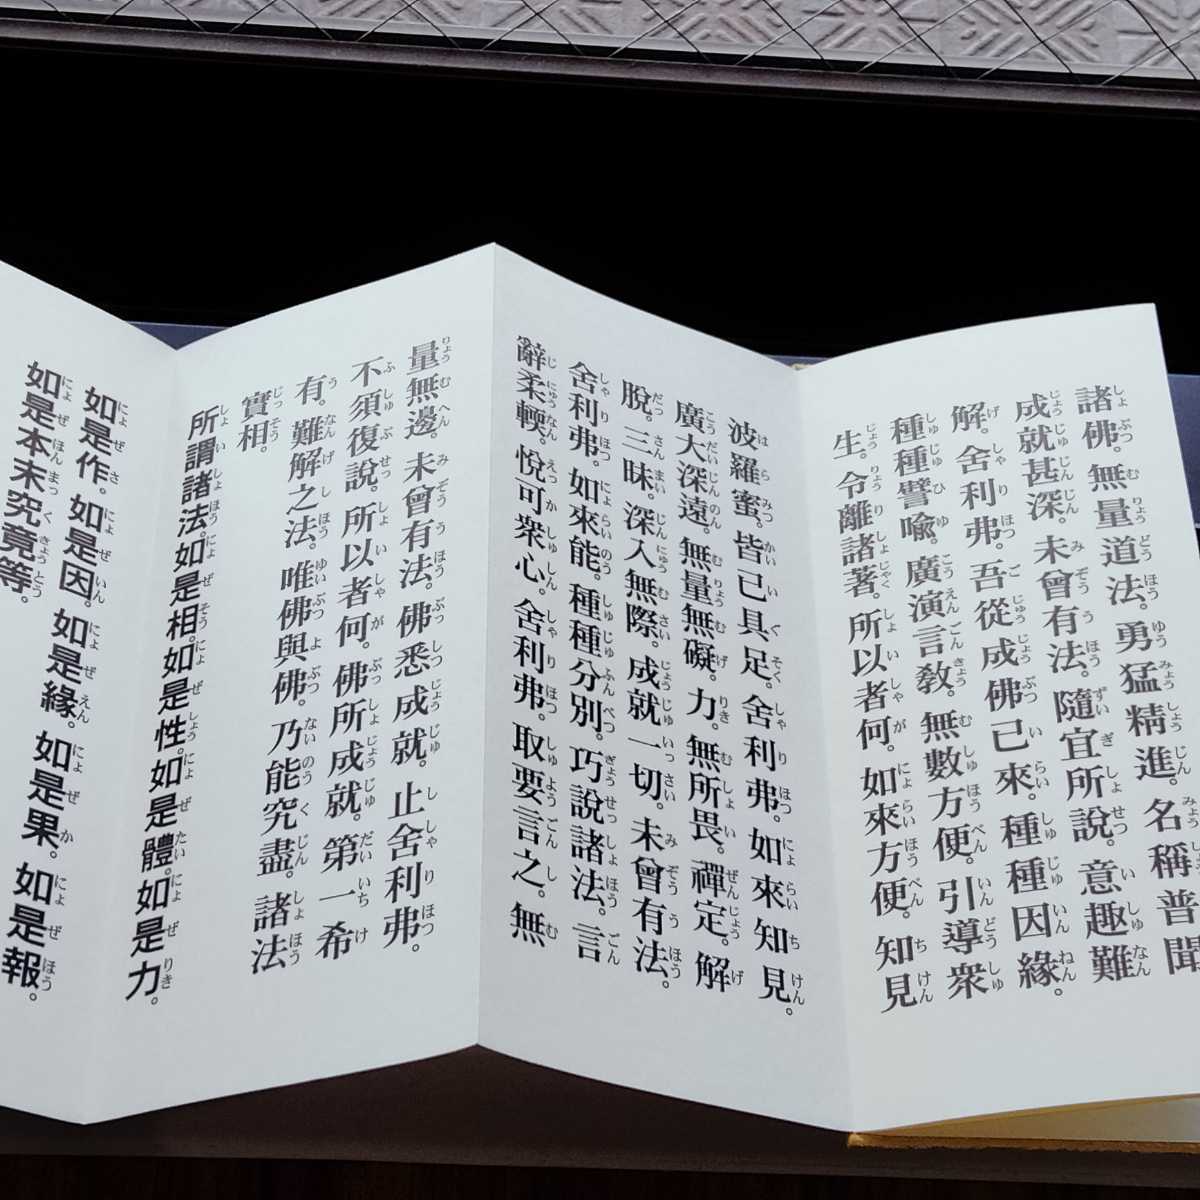 諸佛。無量道法。勇猛精進。名稱普聞
成就甚深。未曾有法。隨宜所說。意趣難
解。舍利弗。吾從成佛已來。種種因緣。
種種譬喩。廣演言敎。無數方便。引導衆
生。令離諸著。所以者何。如來方便。知見
波羅蜜。皆已具足。舍利弗。如來知見。
廣大深遠。無量無礙。力。無所畏。禪定。解
脫。三昧。深入無際。成就一切。未曾有法。
舍利弗。如來能。種種分別。巧說諸法。言
辭柔輭。悅可衆心。舍利弗。取要言之。無
量無邊。未曾有法。佛悉成就。止舍利弗。
不須復說。所以者何。佛所成就。第一希
有。難解之法。唯佛與佛。乃能究盡。諸法
實相。
所謂諸法。如是相。如是性。如是體。如是力。
如是作。如是因。如是緣。如是果。如是報。
如是本末究竟等。